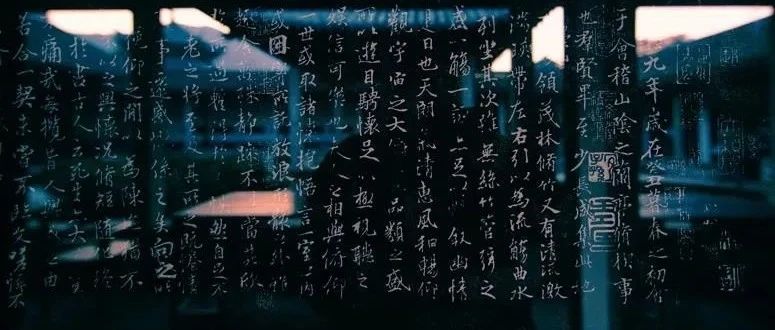 九年歲在癸丑暮春之初會
于會稽山陰之蘭亭脩禊事
也群賢畢至少長咸集此地
領茂林脩竹又有清流激
湍暎帶左右引以為流觴曲水
列坐其次雖無絲竹管弦之
盛一觴一詠亦足以敘幽情
是日也天朗氣清惠風和暢仰
觀宇宙之大品類之盛
所以遊目騁懷足以極視聽之
娛信可樂也夫人之相與俯仰
一世或取諸懷抱悟言一室之內
或因寄所託放浪形骸之外雖
趣舍萬殊靜躁不同當其欣
於所遇得於快然自足不
老之將至及其所之既惓情
事遷感係之矣向之所
俛仰之間以為陳迹猶不
以之興懷況脩短隨化終
於古人云死生亦大矣
痛哉每攬昔人興之由
若合一契未嘗不臨文嗟悼不